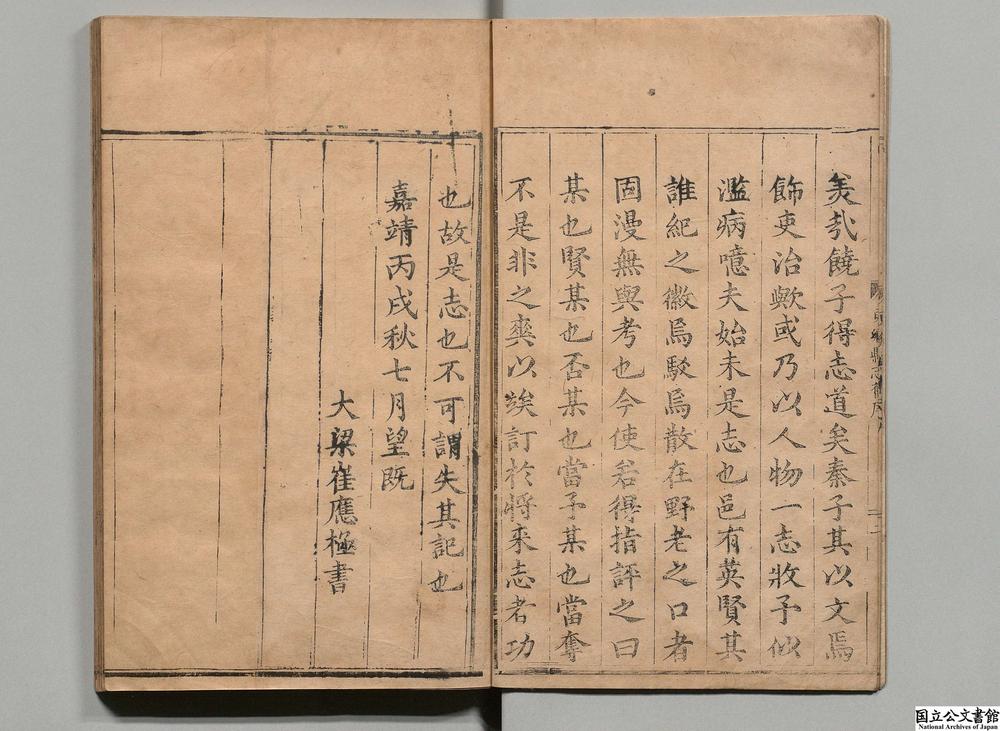 羙哉饒子得志道矣秦子其以文焉
飾吏治歟或乃以人物一志收予似
濫病噫夫始未是志也邑有英賢其
誰紀之徽焉駁焉散在野老之口者
固漫無與考也今使若得指評之曰
某也賢某也否某也當予某也當奪
不是非之爽以竢訂於將来志者功
也故是志也不可謂失其記也
嘉靖丙戌秋七月望既
大梁崔應極書
国立公文書館
National Archives of Japan